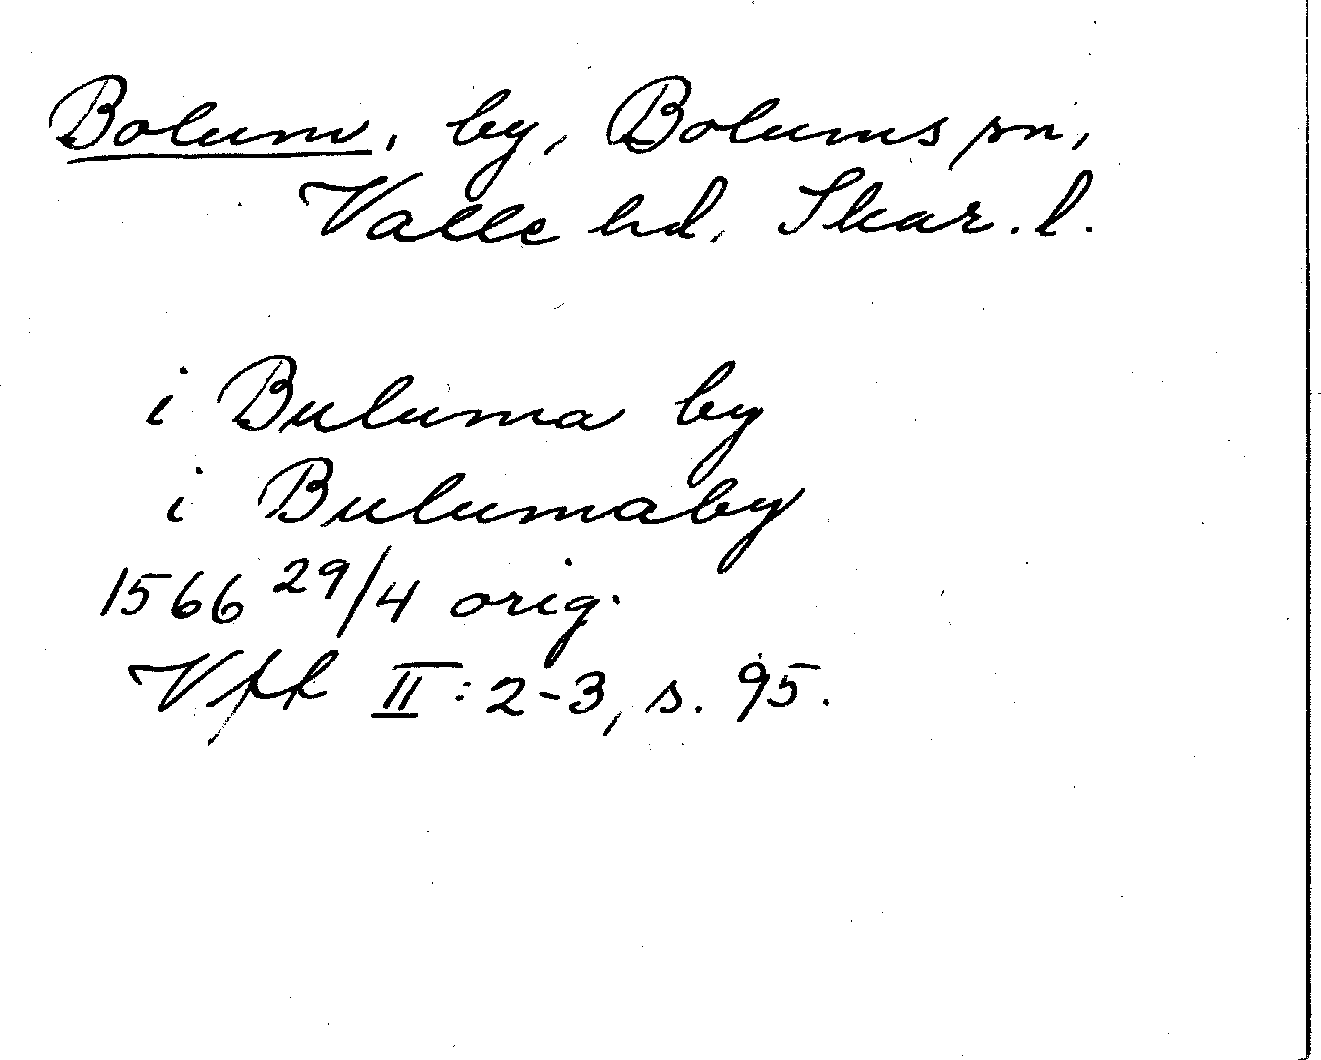 Bolum, by, Bolums sn,
Valle hd, Skar. l.
i Buluma by
i Bulumaby
1566 29/4 orig.
Vfh II: 2-3, s. 95.